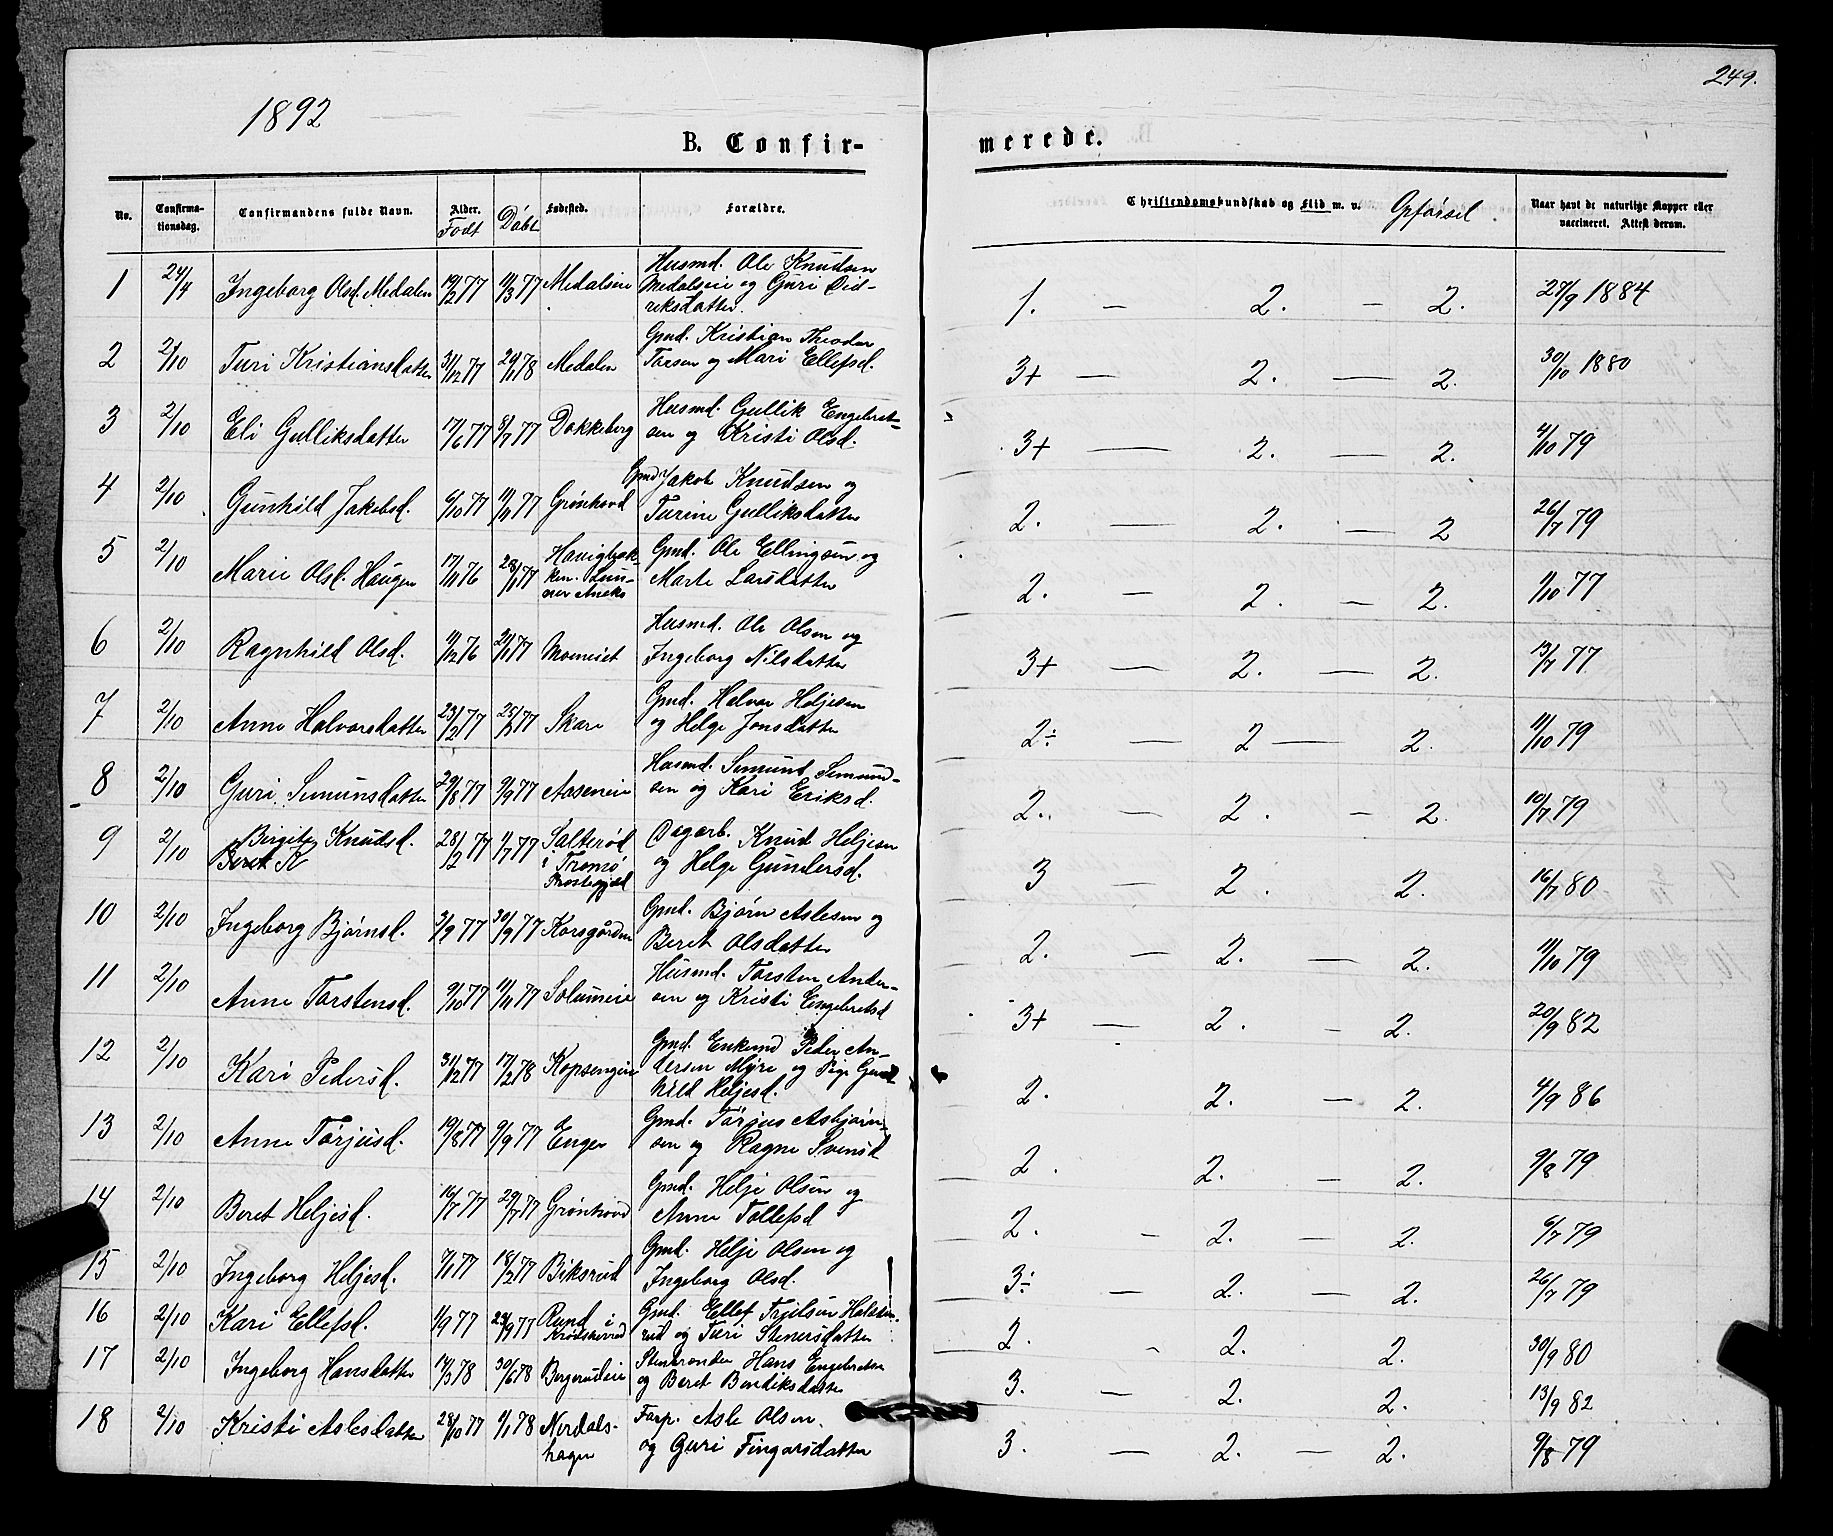 249.
1892
B. Confir-
merede.
No. Confirma-tionsdag. Confirmandens fulde Navn. Alder. Født Døbt Fødested. Forældre. Christendomskundskab og Flid m. v. Opførsel. Naar havt de naturlige Kopper eller vaccineret. Attest derom.
1 24/4 Ingeborg Olsd. Medalen 19/2 77 11/3 77 Medalseie Husmd. Ole Knudsen
Medalseie og Guri Did-
riksdatter. 1. — 2. — 2. 27/9 1884
2 2/10 Turi Kristiansdatter 31/12 77 20/1 78 Medalen Gmd. Kristian Theodor
Torsen og Mari Ellefsd. 3+ — 2. — 2. 30/10 1880
3 2/10 Eli Gulliksdatter 17/6 77 8/7 77 Dokkeberg Husmd. Gullik Engebret-
sen og Kristi Olsd. 3+ — 2. — 2. 4/10 79
4 2/10 Gunhild Jakobsd. 6/10 77 11/11 77 Grønhovd Gmd Jakob Knudsen og
Turine Gulliksdatter 2. — 2. — 2 26/7 79
5 2/10 Marie Olsd. Haugen 17/11 76 28/1 77 Haugbak-
ken. Lun-
ner Aneks Gmd. Ole Ellingsen og
Marte Larsdatter 2. — 2. — 2. 1/10 77
6 2/10 Ragnhild Olsd. 11/12 76 21/1 77 Moeneiet Husmd. Ole Olsen og
Ingeborg Nilsdatter 3+ — 2. — 2. 13/7 77
7 2/10 Anne Halvorsdatter 23/2 77 25/3 77 Skare Gmd. Halvor Heljesen
og Helge Jonsdatter 2÷ — 2 — 2. 11/10 79
8 2/10 Guri Simunsdatter 29/8 77 9/9 77 Aaseneie Husmd. Simund Simund-
sen og Kari Eriksd. 2. — 2. — 2. 10/7 79
9 2/10 Birgite Knudsd.
Beret K 28/2 77 1/7 77 Salterød
i Tromø
Prestegjeld Dagarb. Knud Heljesen
og Helge Gundersd. 3 — 2. 2. 16/7 80
10 2/10 Ingeborg Bjørnsd. 3/9 77 30/9 77 Korsgården Gmd. Bjørn Aslesen og
Beret Olsdatter 2. — 2. — 2. 11/10 79
11 2/10 Anne Torstensd. 9/10 77 11/11 77 Solumeie Husmd. Torsten Ander-
sen og Kristi Engebretsd 3+ — 2. — 2. 20/9 82
12 2/10 Kari Pedersd. 31/12 77 17/2 78 Kopsengeie Gmd. Enkemd Peder An-
dersen Myre og Pige Gun
hild Heljesd. 2. 2. — 2. 4/9 86
13 2/10 Anne Torjusd. 19/8 77 9/9 77 Enger Gmd. Torjus Asbjørn-
sen og Ragne Svensd 2. 2. — 2. 9/8 79
14 2/10 Beret Heljesd. 16/7 77 29/7 77 Grønhovd Gmd. Helje Olsen og
Anne Tollefsd 2. — 2. — 2. 6/7 79
15 2/10 Ingeborg Heljesd. 7/1 77 18/2 77 Biksrud Gmd. Helje Olsen og
Ingeborg Olsd. 3÷ — 2. — 2. 26/7 79
16 2/10 Kari Ellefsd. 1/9 77 23/9 77 Rund i
Krødsherred Gmd. Ellef
og Turi Stenersdatter 2. 2. 2. 30/9 80
17 2/10 Ingeborg Hansdatter 14/3 78 30/6 78 Bergerudeie Hans Engebretsen
og Beret Bendiksdatter 3. — 2. 2. 13/9 82
18 2/10 Kristi Aslesdatter 28/10 77 1/1 78 Nerdals-
hagen Forp. Asle Olsen
og Guri Fingarsdatter 3. — 2. — 2. 9/8 79